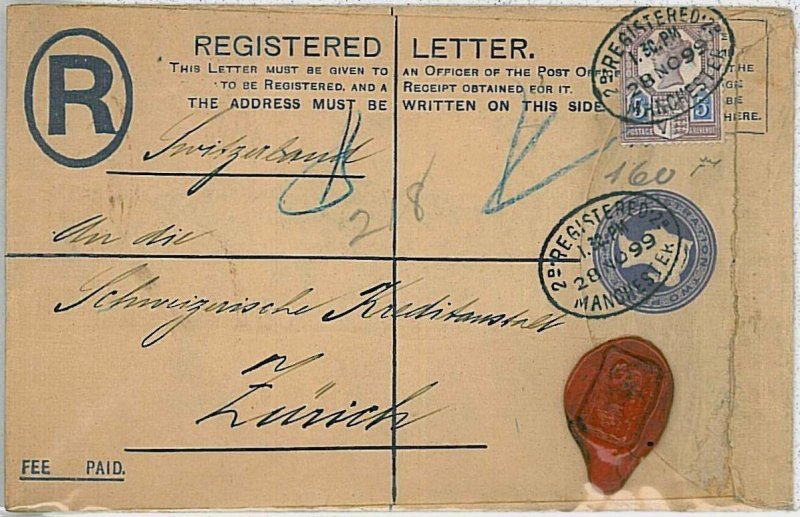 REGISTERED LETTER.
THIS LETTER MUST BE GIVEN TO AN OFFICER OF THE POST OFFICE
TO BE REGISTERED, AND A RECEIPT OBTAINED FOR IT.
THE ADDRESS MUST BE WRITTEN ON THIS SIDE.
THE
BE
HERE.
R
REGISTERED
1.30.PM
28 NO 99
MANCHESTER
5 5
POSTAGE REVENUE
Switzerland
218
160
An die
REGISTERED
1.30.PM
28 NO 99
MANCHESTER
REGISTRATION
Schweizerische Kreditanstalt
Zürich
FEE PAID.